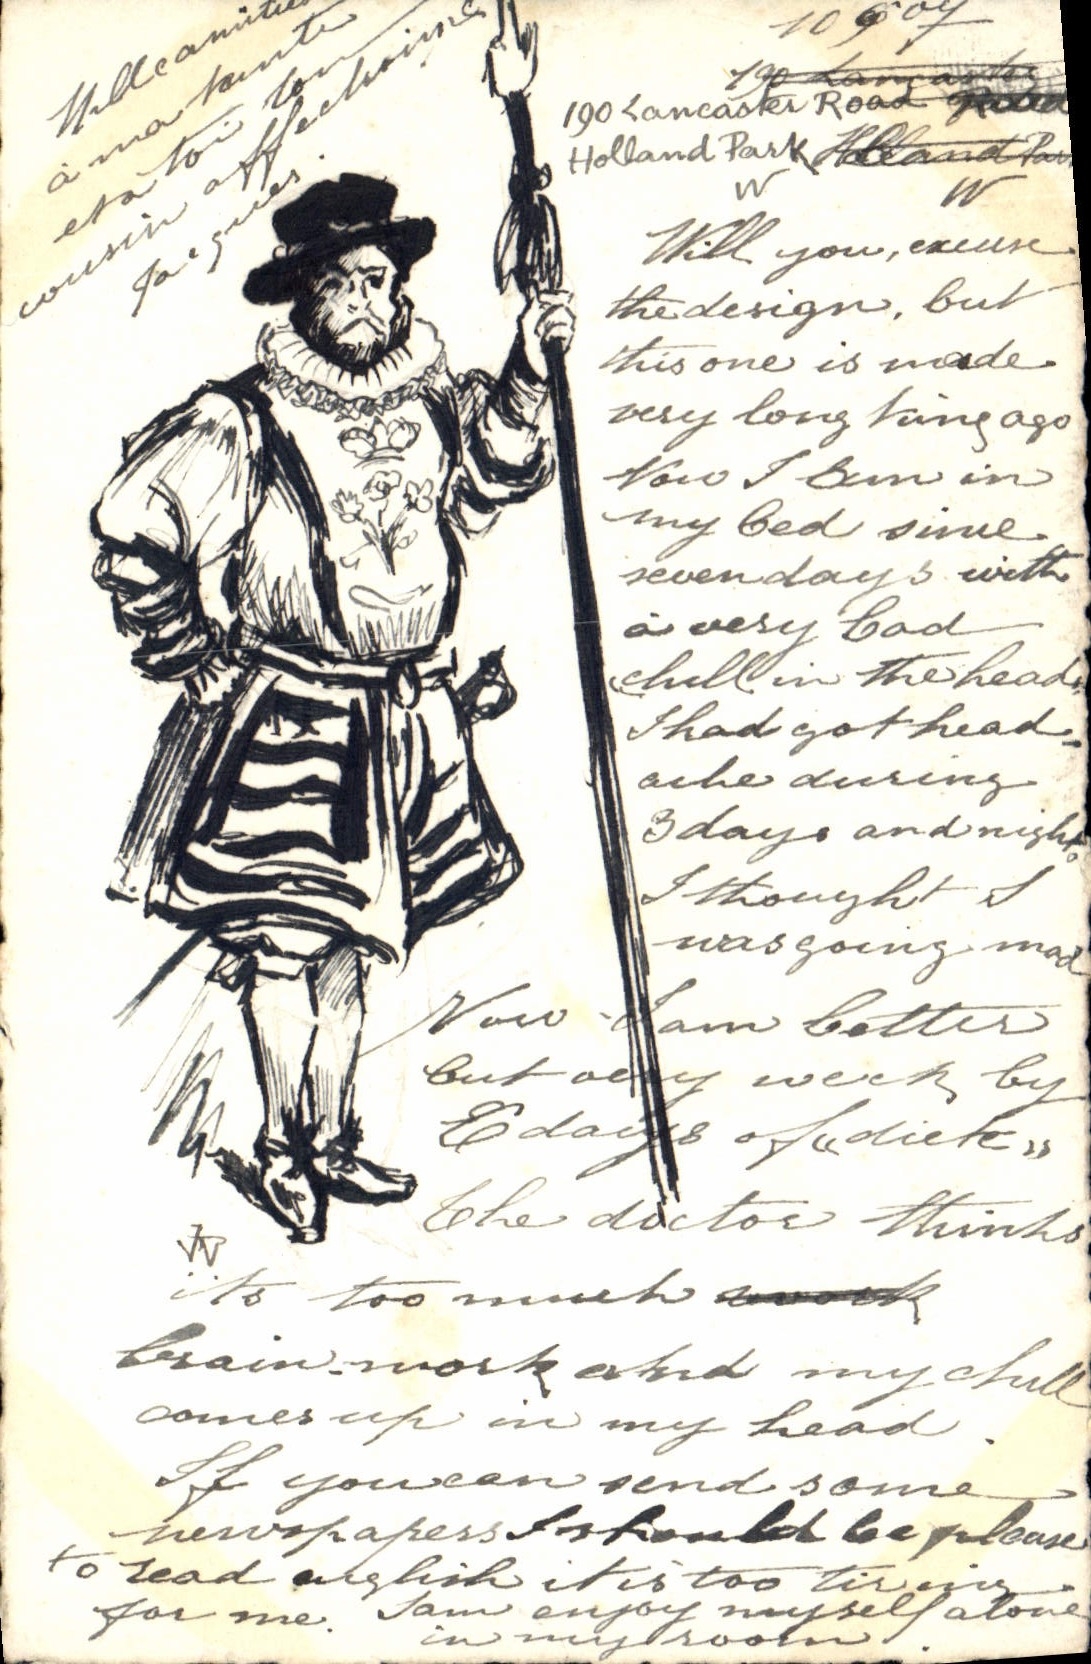 190 Lancaster Road
Holland Park
W
W
Will you, excuse
the design, but
this one is made
very long time ago
Now I am in
my bed since
seven days with
a very bad
chill in the head,
I had got head-
ache during
3 days and nights
I thought I
was going mad
Now I am better
but very week by
8 days of "diete"
The doctor thinks
its too much work
brain-work and my chill
comes up in my head.
If you can send some
newspapers I should be please
to read english it is too tiring
for me. I am enjoy myself alone
in my room.
Mille amitiés
à ma tante
et à toi ton
cousin affectionné
Jacques.